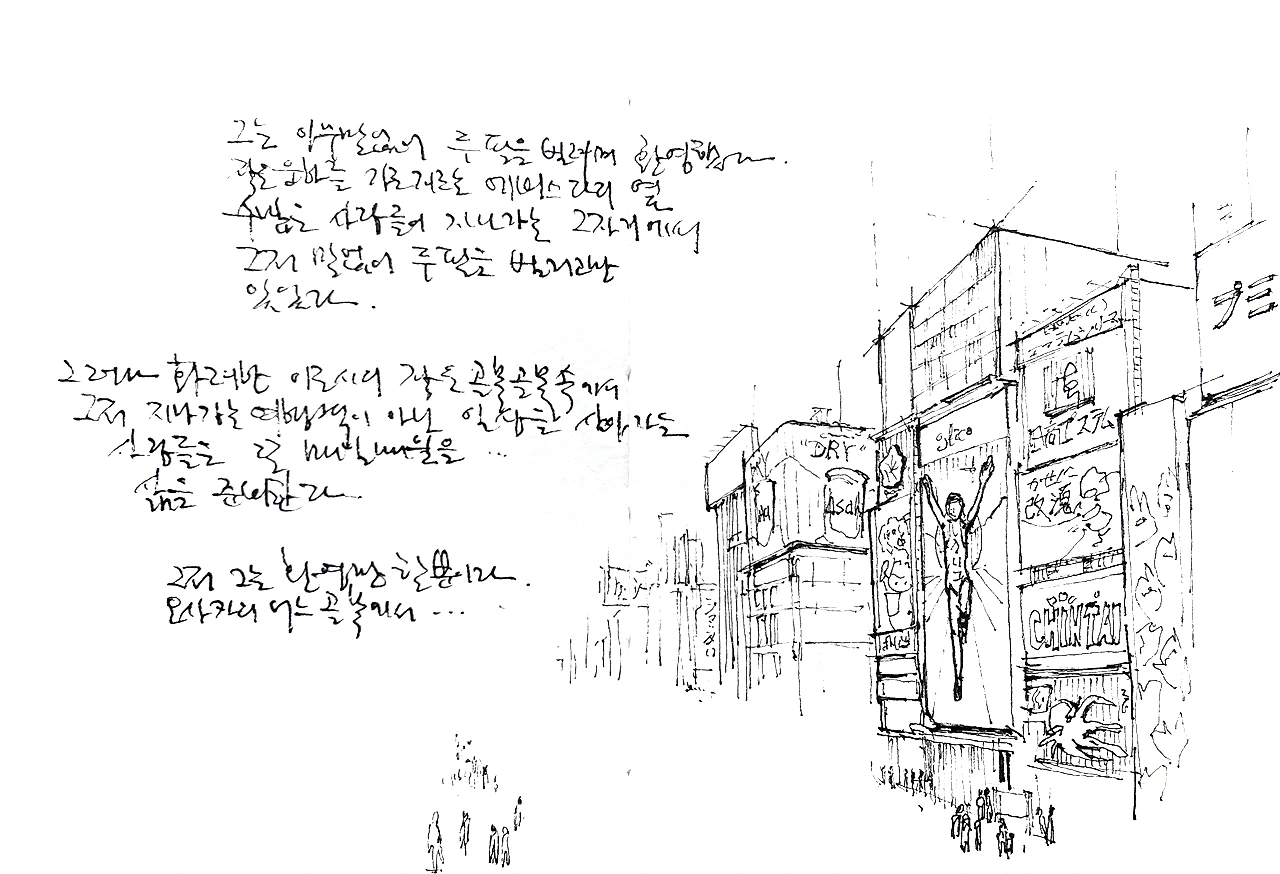 그는 아무말없이 두 팔을 벌려며 환영했다.
작은 운하를 가로지르는 에비스 다리 옆
수많은 사람들이 지나가는 그자리에서
그저 말없이 두 팔을 벌리고만
있었다.
그러나 화려한 이 도시의 작은 골목골목 속에서
그저 지나가는 여행객이 아닌 일상을 살아가는
사람들은 또 내일 내일을 ...
삶을 준비한다.
그저 그는 환영만 할 뿐이다.
오사카의 어느 골목에서 ...
"DRY"
Asahi
glico
改源
CHINTAI